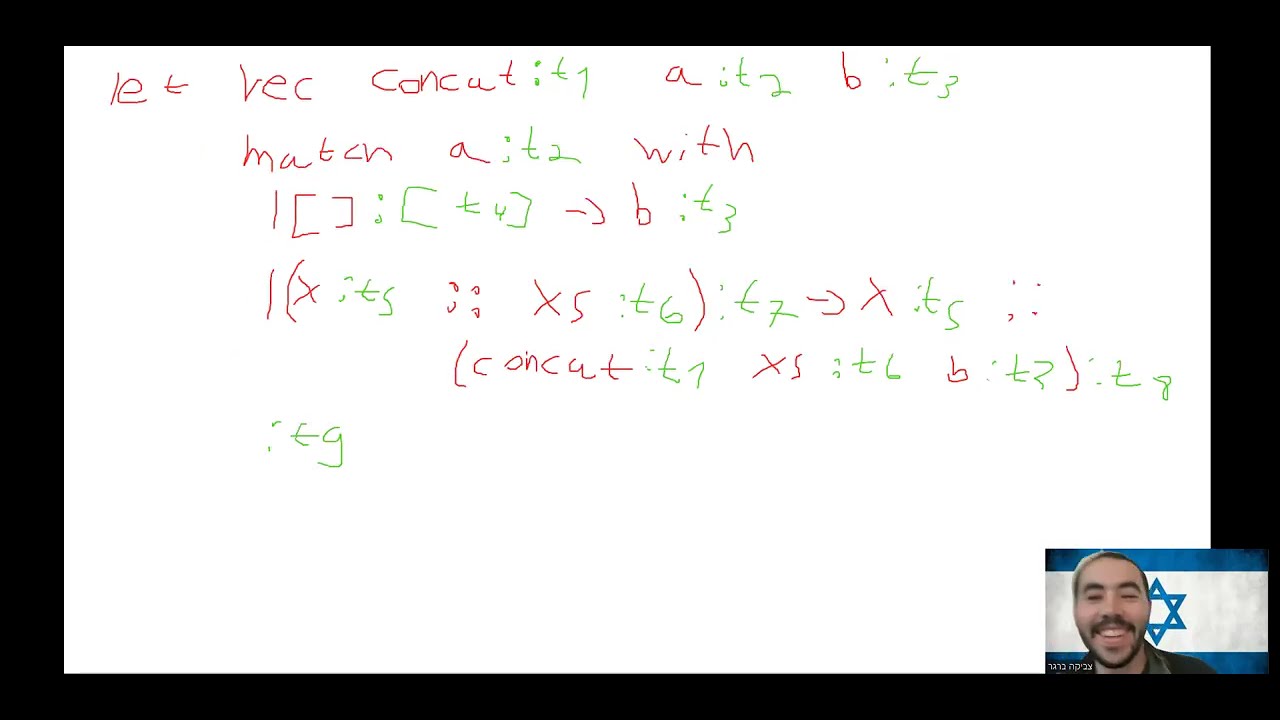 let rec concat :t1 a :t2 b :t3
match a :t2 with
| [] : [t4] -> b :t3
| (x :t5 :: xs :t6) :t7 -> x :t5 ::
(concat :t1 xs :t6 b :t3) :t8
:t9
צביקה ברגר